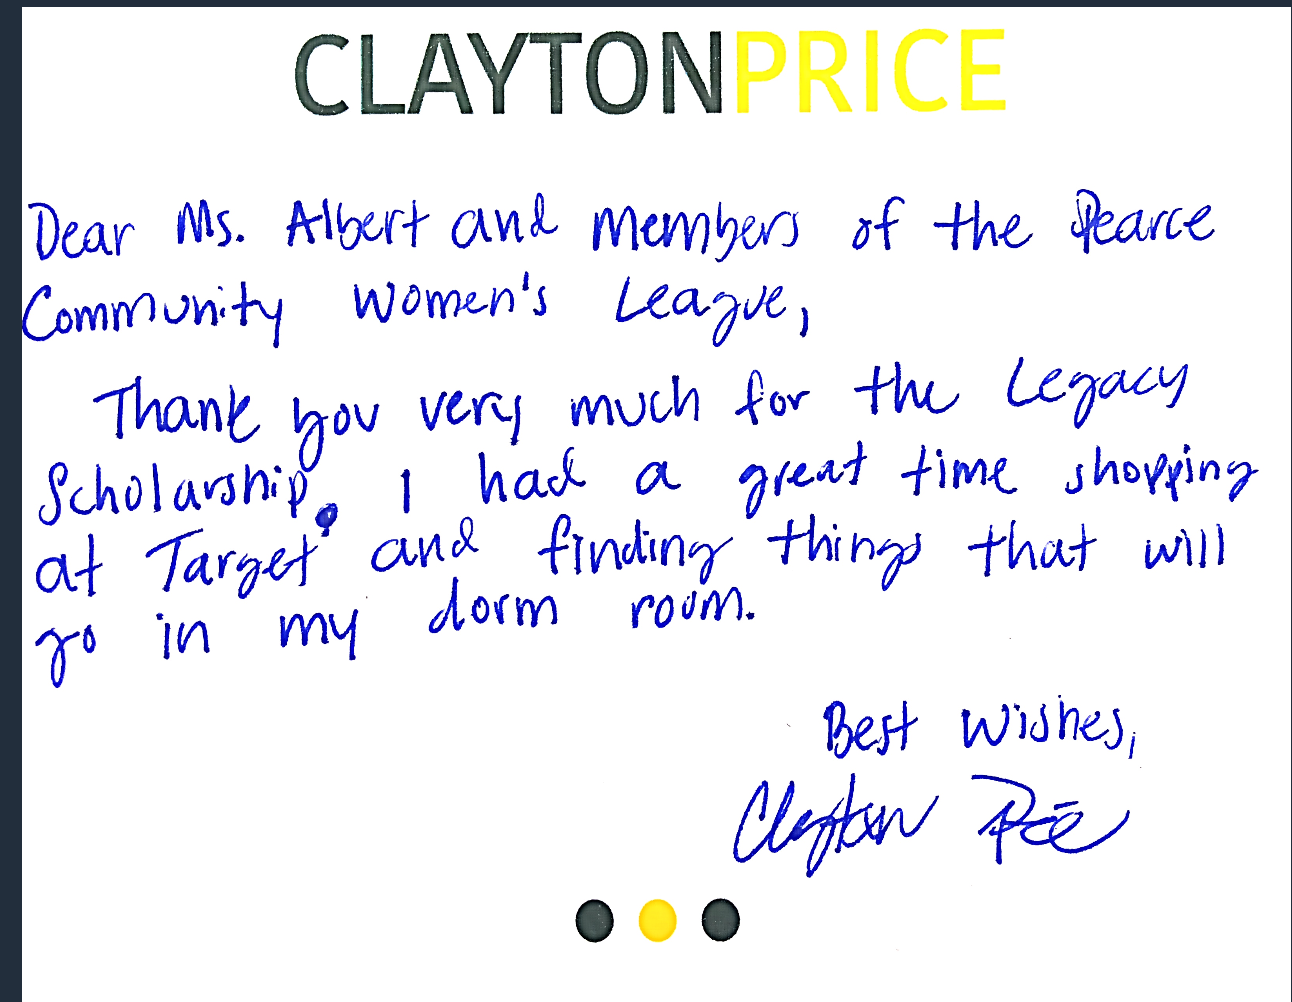 CLAYTONPRICE
Dear Ms. Albert and members of the Pearce
Community Women's League,
Thank you very much for the Legacy
Scholarship. I had a great time shopping
at Target and finding things that will
go in my dorm room.
Best Wishes,
Clayton Price